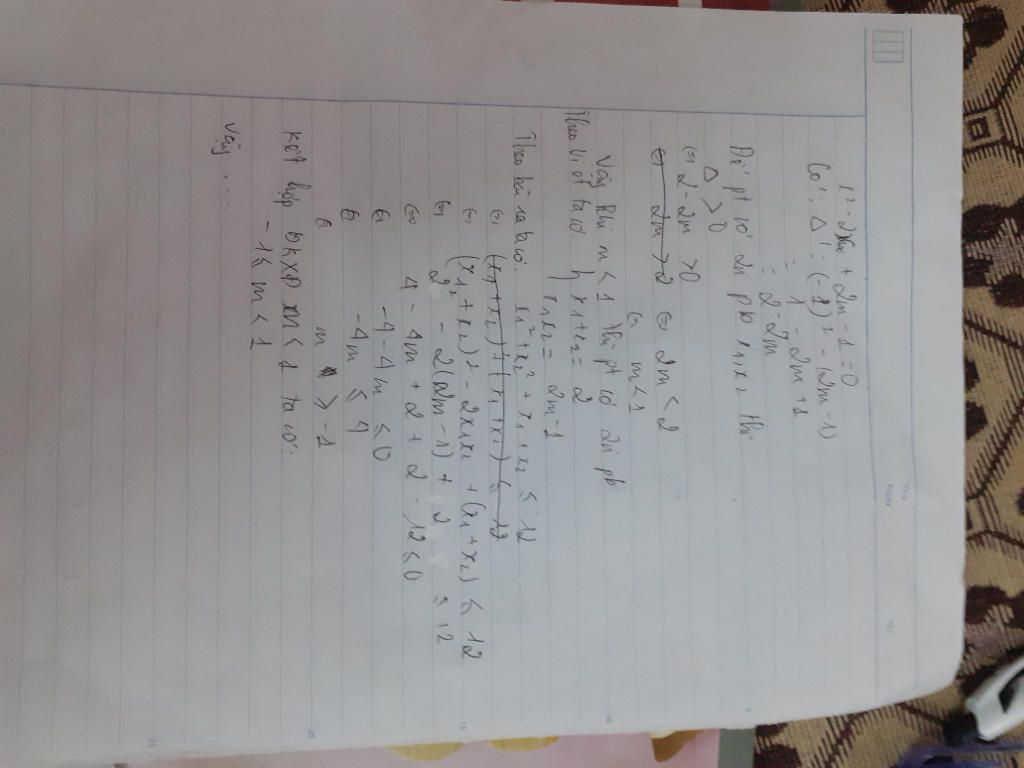 Thứ
Ngày
No.
x² - 2x + 2m - 1 = 0
Có: Δ' = (-1)² - (2m - 1)
= 1 - 2m + 1
= 2 - 2m
Để pt có 2n pb x₁, x₂ thì
Δ' > 0
⇔ 2 - 2m > 0
⇔ 2m > 2 ⇔ 2m < 2
⇔ m < 1
Vậy khi m < 1 thì pt có 2n pb
Theo vi ét ta có { x₁ + x₂ = 2
x₁x₂ = 2m - 1
Theo bài ra ta có: x₁² + x₂² + x₁ + x₂ ≤ 12
⇔ (x₁ + x₂) + (x₁ + x₂) ≤ 12
⇔ (x₁ + x₂)² - 2x₁x₂ + (x₁ + x₂) ≤ 12
⇔ 2² - 2(2m - 1) + 2 ≤ 12
⇔ 4 - 4m + 2 + 2 - 12 ≤ 0
⇔ -4 - 4m ≤ 0
⇔ -4m ≤ 4
⇔ m ≥ -1
Kết hợp ĐKXĐ m < 1 ta có:
-1 ≤ m < 1
Vậy ....
5
10
15
20
25